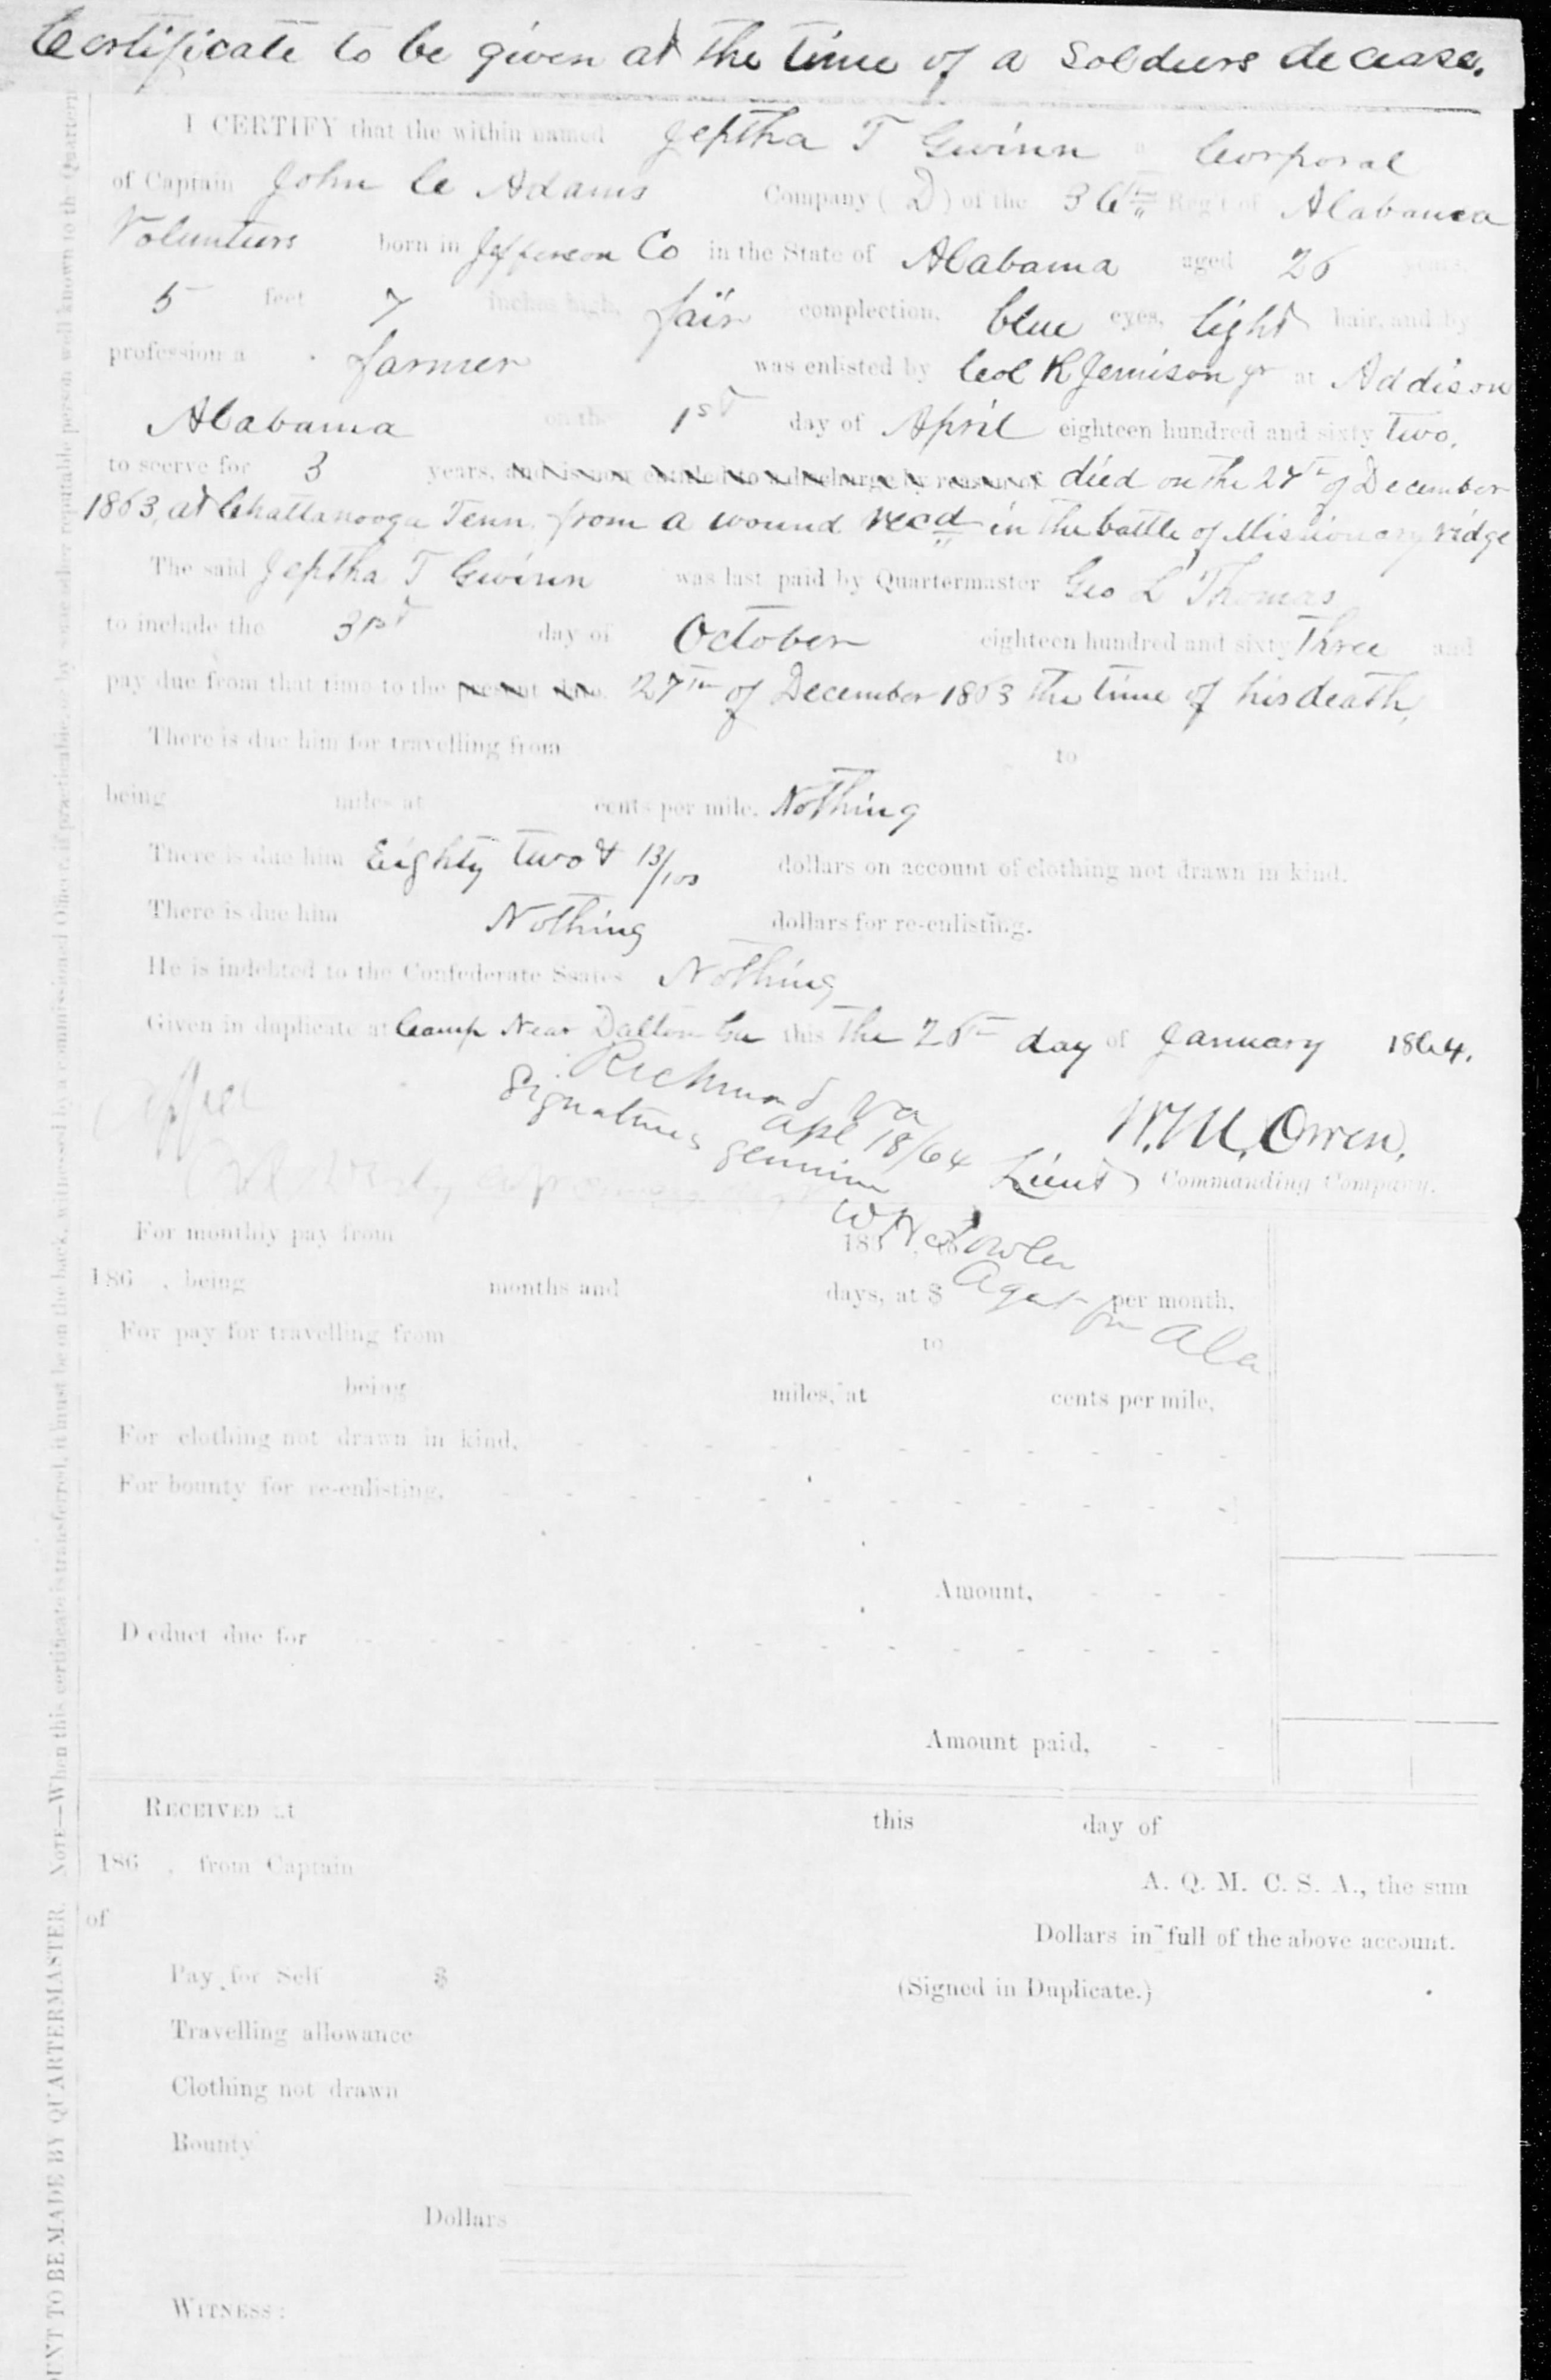 Certificate to be given at the time of a Soldiers decease.
I CERTIFY that the within named Jeptha T Gwinn a Corporal
of Captain John C Adams Company ( D ) of the 36th Reg't of Alabama
Volunteers born in Jefferson Co in the State of Alabama aged 26 years,
5 feet 7 inches high, fair complection, blue eyes, light hair, and by
profession a farmer was enlisted by Col R Jemison Jr at Addison
Alabama on the 1st day of April eighteen hundred and sixty two,
to seerve for 3 years, and is now entitled to a discharge by reason of died on the 27th of December
1863, at Chattanooga Tenn, from a wound recd in the battle of Missionary ridge
The said Jeptha T Gwinn was last paid by Quartermaster Geo L Thomas
to include the 31st day of October eighteen hundred and sixty Three and
pay due from that time to the present date. 27th of December 1863 the time of his death,
There is due him for travelling from to
being miles at cents per mile. Nothing
There is due him Eighty two & 13/100 dollars on account of clothing not drawn in kind.
There is due him Nothing dollars for re-enlisting.
He is indebted to the Confederate Ssates Nothing
Given in duplicate at Camp Near Dalton Ga this the 26th day of January 1864.
Richmond Va
Apl 18/64
Signatures genuine
W H Fowler
Agent for Ala
W. M. Owen,
Lieut Commanding Company.
For monthly pay from 186
186 , being months and days, at $ per month,
For pay for travelling from to
being miles, at cents per mile,
For clothing not drawn in kind,
For bounty for re-enlisting,
Amount,
Deduct due for
Amount paid,
RECEIVED at this day of
186 , from Captain
A. Q. M. C. S. A., the sum
of
Dollars in full of the above account.
Pay for Self $
(Signed in Duplicate.)
Travelling allowance
Clothing not drawn
Bounty
Dollars
WITNESS:
UNT TO BE MADE BY QUARTERMASTER. NOTE—When this certificate is transferred, it must be on the back, witnessed by a commissioned Officer, if practicable, or by some other reputable person well known to the Quarterm